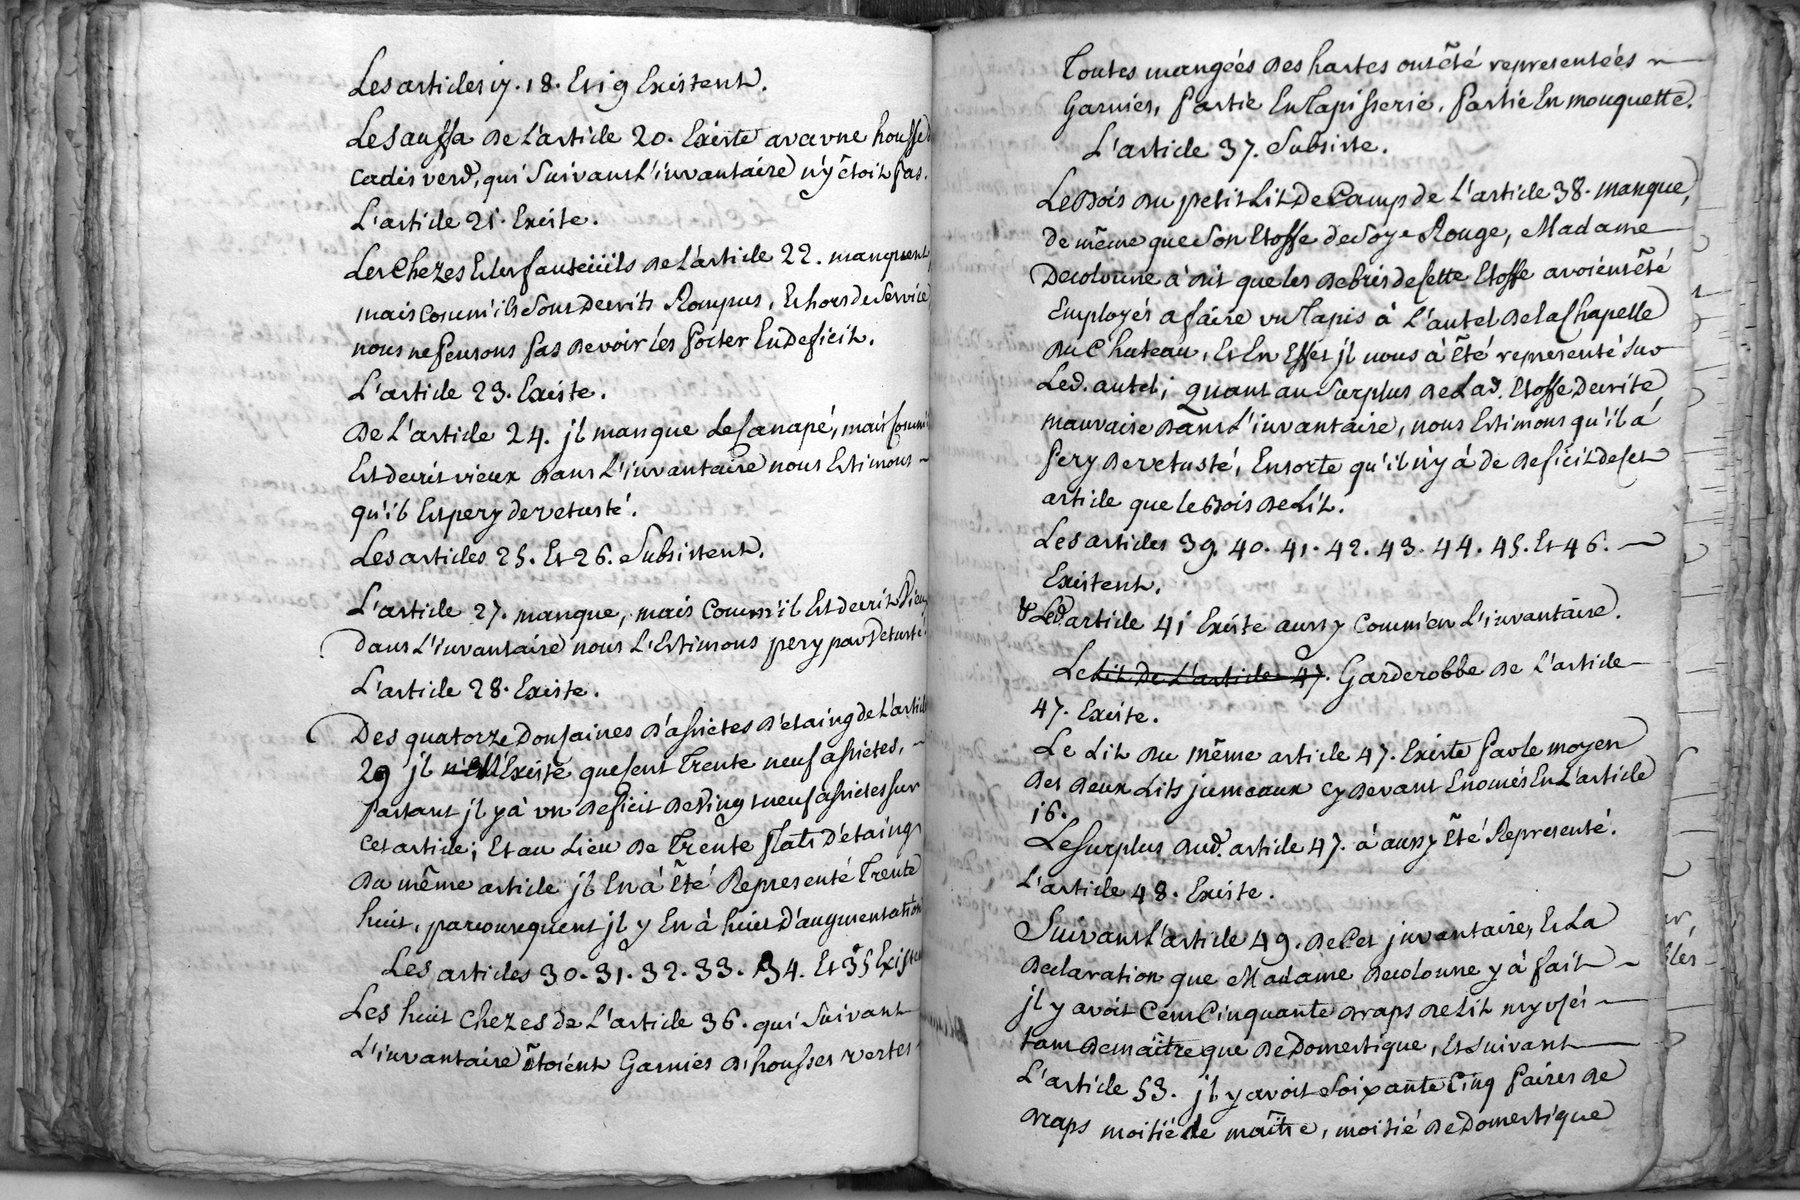 Les articles 17. 18. Et 19 Existent.
Le Sauffa de L'article 20. Existe avavne housse
Cadis verd, qui Suivant L'invantaire n'y étoit pas.
L'article 21. Existe.
Les Chezes Et les fauteüils de L'article 22. manquent,
mais Comm'ils Sont Decrits Rompus, Et hors de Service
nous ne pensons pas devoir les porter En Deficit.
L'article 23. Existe.
De L'article 24. jl manque Le Canapé, mais Comm'il
Est decrit vieux dans L'invantaire nous Estimons
qu'il Est pery de vetusté.
Les articles 25. Et 26. Subsistent.
L'article 27. manque, mais Comm'il Est decrit Vieux
dans L'invantaire nous L'Estimons pery par Vetusté.
L'article 28. Existe.
Des quatorze Douzaines d'assietes d'etaing de L'article
29 jl Existe que Cent Trente neuf assietes,
partant jl y à vn Deficit de Vingt neuf assietes sur
Cet article; Et au Lieu de Trente plats D'étaing
du même article jl En à Eté Representé Trente
huit, par consequent jl y En à huit d'augmentation
Les articles 30. 31. 32. 33. 34. Et 35 Existent
Les huit Chezes de L'article 36. qui Suivant
L'invantaire étoient Garnies d'housses vertes
Toutes mangéés des hartes ont été representéés
Garnies, partie En Tapisserie, partie En mouquette.
L'article 37. Subsiste.
Le Bois du petit Lit De Camp de L'article 38. manque,
de même que Son Etoffe de Soye Rouge, Madame
Decolonne à dit que les debris de Cette Etoffe avoient été
Employés a faire vn Tapis à L'autel de la Chapelle
du Chateau, Et En Effet jl nous à Eté representé Sur
Led. autel; quant au Surplus de Lad. Etoffe Decrite
mauvaise dans L'invantaire, nous Estimons qu'il à
pery de vetusté, Ensorte qu'il n'y à de deficit de Cet
article que le Bois de Lit.
Les articles 39. 40. 41. 42. 43. 44. 45. Et 46.
Existent.
Led. article 41 Existe aussy Comm'en L'invantaire.
Le Lit de L'article 47. Garderobbe de L'article
47. Existe.
Le Lit du même article 47. Existe par le moyen
des deux Lits jumeaux Cy devant Enomés En L'article
16.
Le Surplus dud. article 47. à aussy Eté Representé.
L'article 48. Existe.
Suivant L'article 49. de Cet jnvantaire, Et La
declaration que Madame Decolonne y à fait
jl y avoit Cent Cinquante draps de Lit my vsés
tant de maître que de Domestique, Et Suivant
L'article 53. jl y avoit Soixante Cinq paires de
draps moitié de maître, moitié de Domestique